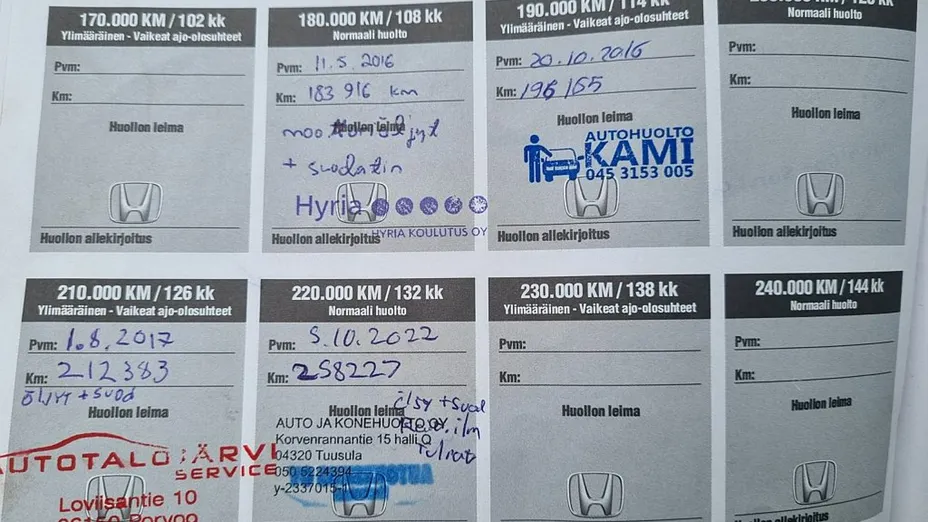 170.000 KM / 102 kk
Ylimääräinen - Vaikeat ajo-olosuhteet
Pvm:
Km:
Huollon leima
Huollon allekirjoitus
180.000 KM / 108 kk
Normaali huolto
Pvm: 11.5.2016
Km: 183 916 km
Huollon leima
+ suodatin
Hyria
HYRIA KOULUTUS OY
Huollon allekirjoitus
190.000 KM / 114 kk
Ylimääräinen - Vaikeat ajo-olosuhteet
Pvm: 20.10.2016
Km: 196165
Huollon leima
AUTOHUOLTO
KAMI
045 3153 005
Huollon allekirjoitus
Normaali huolto
Pvm:
Km:
Huollon leima
Huollon allekirjoitus
210.000 KM / 126 kk
Ylimääräinen - Vaikeat ajo-olosuhteet
Pvm: 1.8.2017
Km: 212383
Öljyt + suod
Huollon leima
AUTOTALO JÄRVI
SERVICE
Loviisantie 10
220.000 KM / 132 kk
Normaali huolto
Pvm: 5.10.2022
Km: 258227
Huollon leima
Öljy + suod
AUTO JA KONEHUOLTO OY
Korvenrannantie 15 halli Q
04320 Tuusula
050 5224394
y-2337015-1
230.000 KM / 138 kk
Ylimääräinen - Vaikeat ajo-olosuhteet
Pvm:
Km:
Huollon leima
240.000 KM / 144 kk
Normaali huolto
Pvm:
Km:
Huollon leima
Huollon allekirjoitus